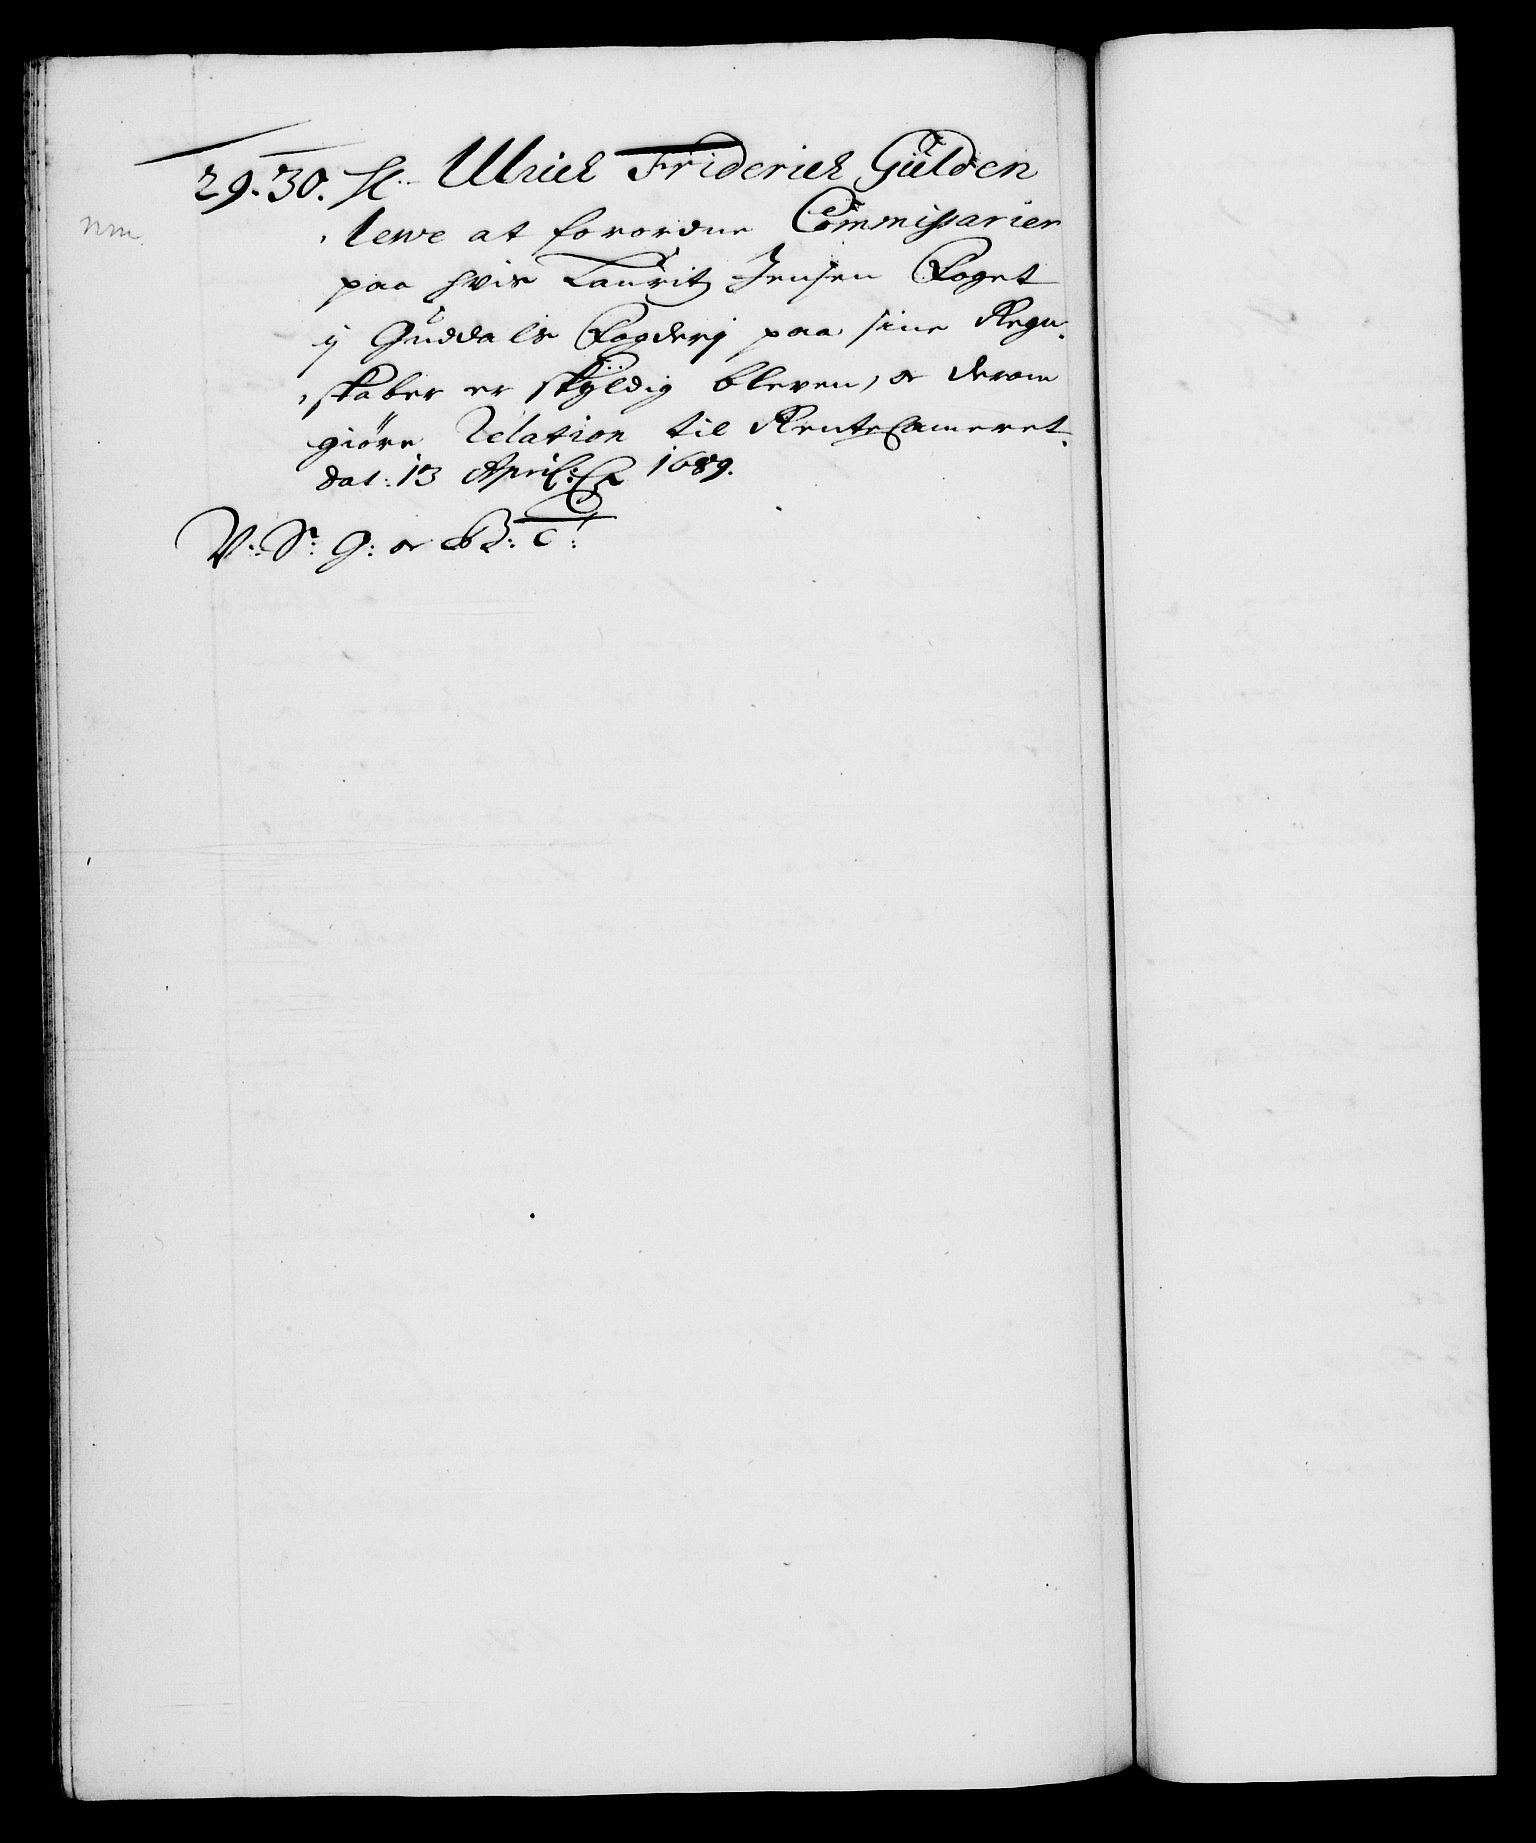 29.30. H:r Ulrich Friderich Gülden
lewe at forordne Commissarier
paa hvis Lauritz Jensen Foget
ÿ Guddals Fogderj paa sine Regn-
skaber er skÿldig bleven, oc derom
giöre Relation til RenteCameret.
dat: 13 April: 1689.
V: S: G: oc B: C:
nm.